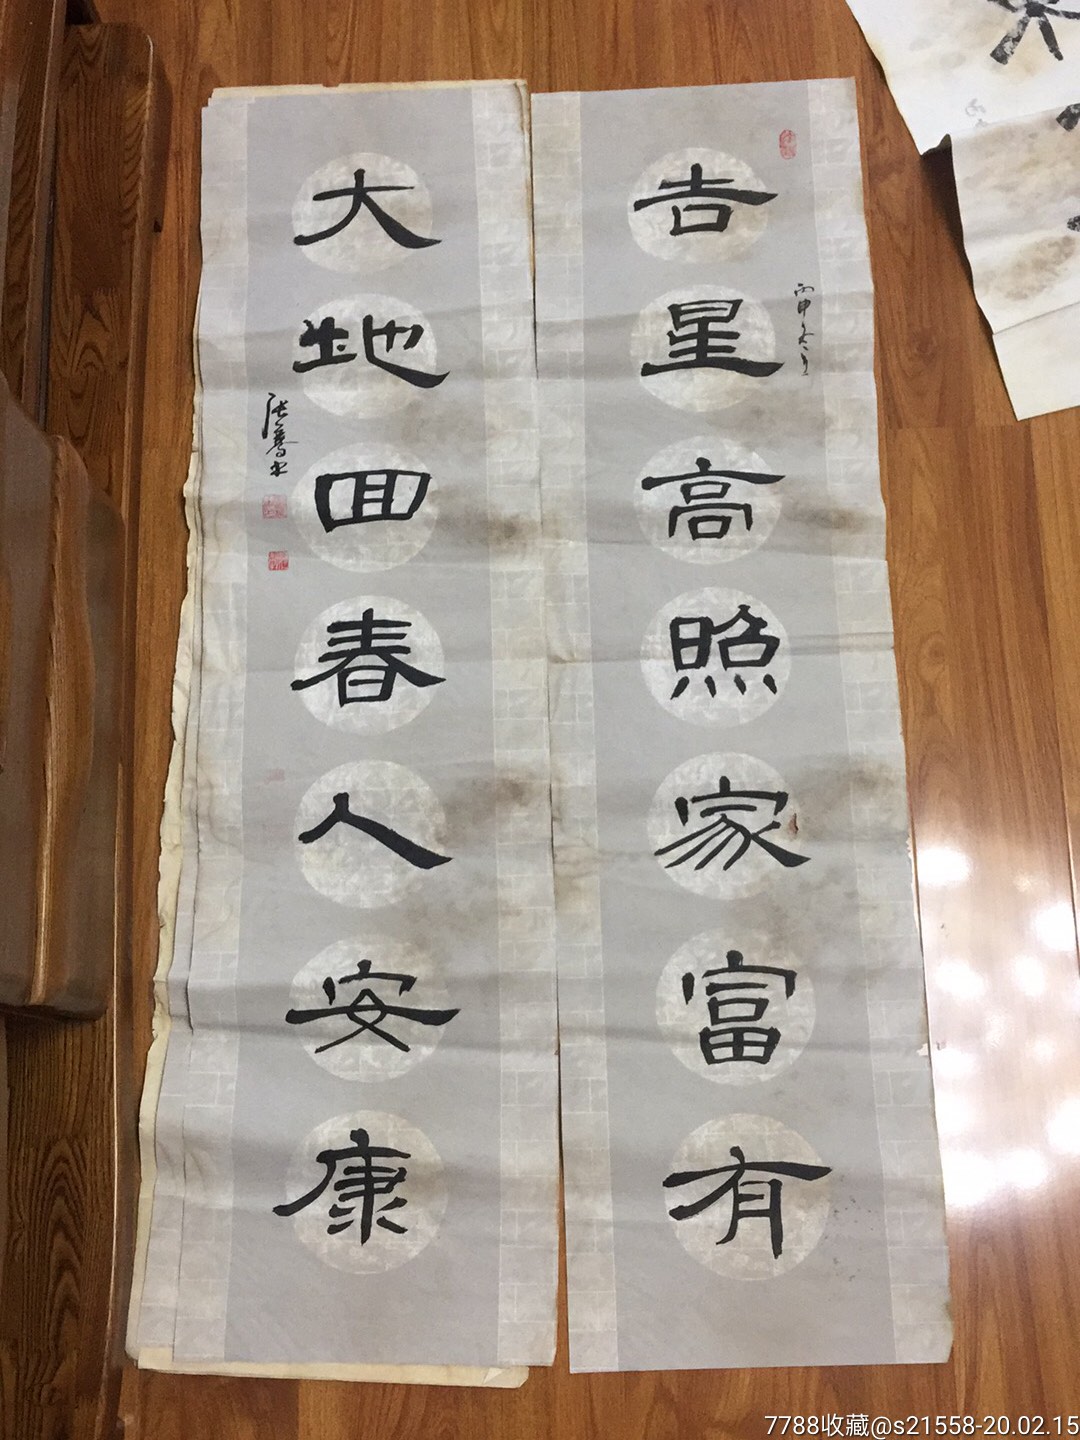 吉星高照家富有
丙申冬月
大地回春人安康
7788收藏@s21558-20.02.15